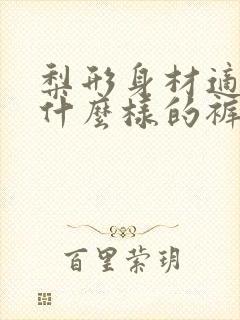 梨形身材適
什麼樣的褲
百里萦玥